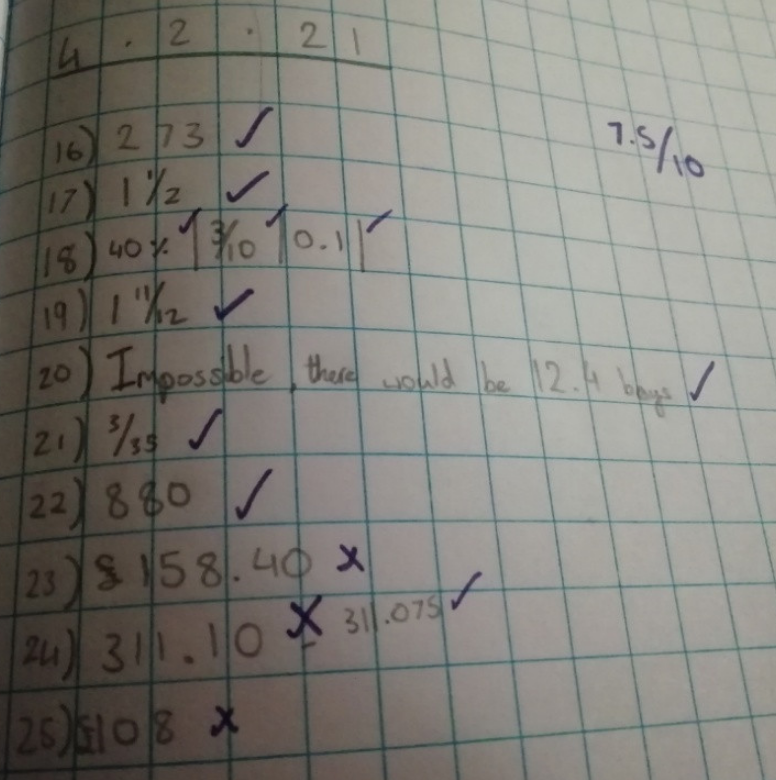 4.2.21
7.5/10
16) 273 ✓
17) 1 1/2 ✓
18) 40% ✓ | 3/10 ✓ | 0.1 | ✓
19) 1 11/12 ✓
20) Impossible, there would be 12.4 boys ✓
21) 3/35 ✓
22) 880 ✓
23) $158.40 x
24) 311.10 x 311.075 ✓
25) $108 x